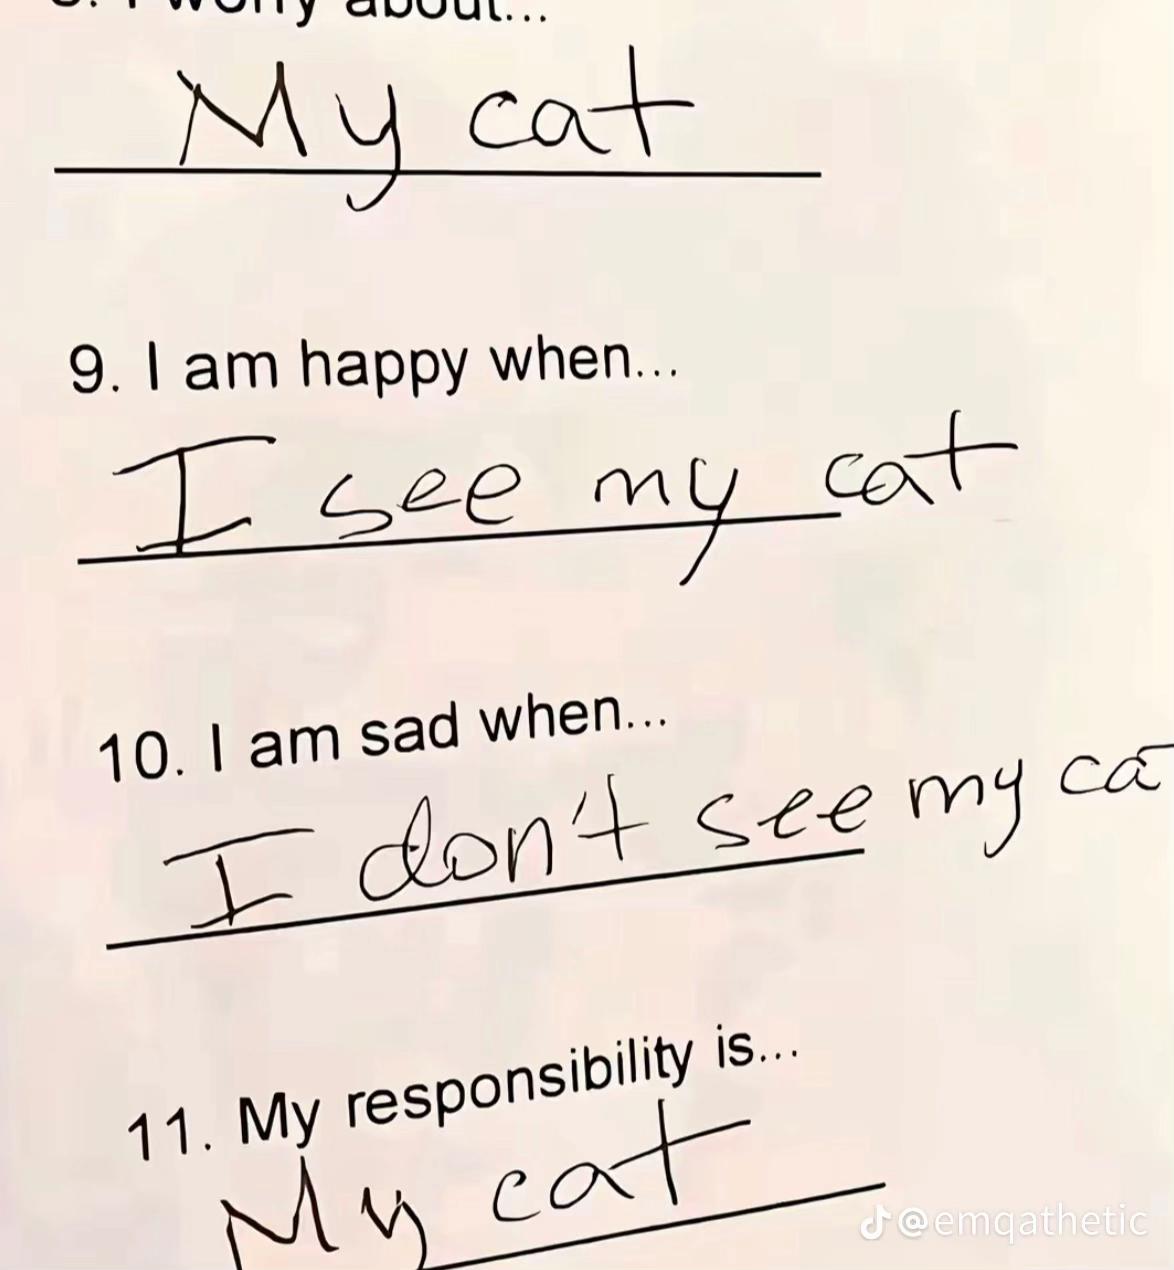 8. I worry about...
My cat
9. I am happy when...
I see my cat
10. I am sad when...
I don't see my ca
11. My responsibility is...
My cat
@emqathetic